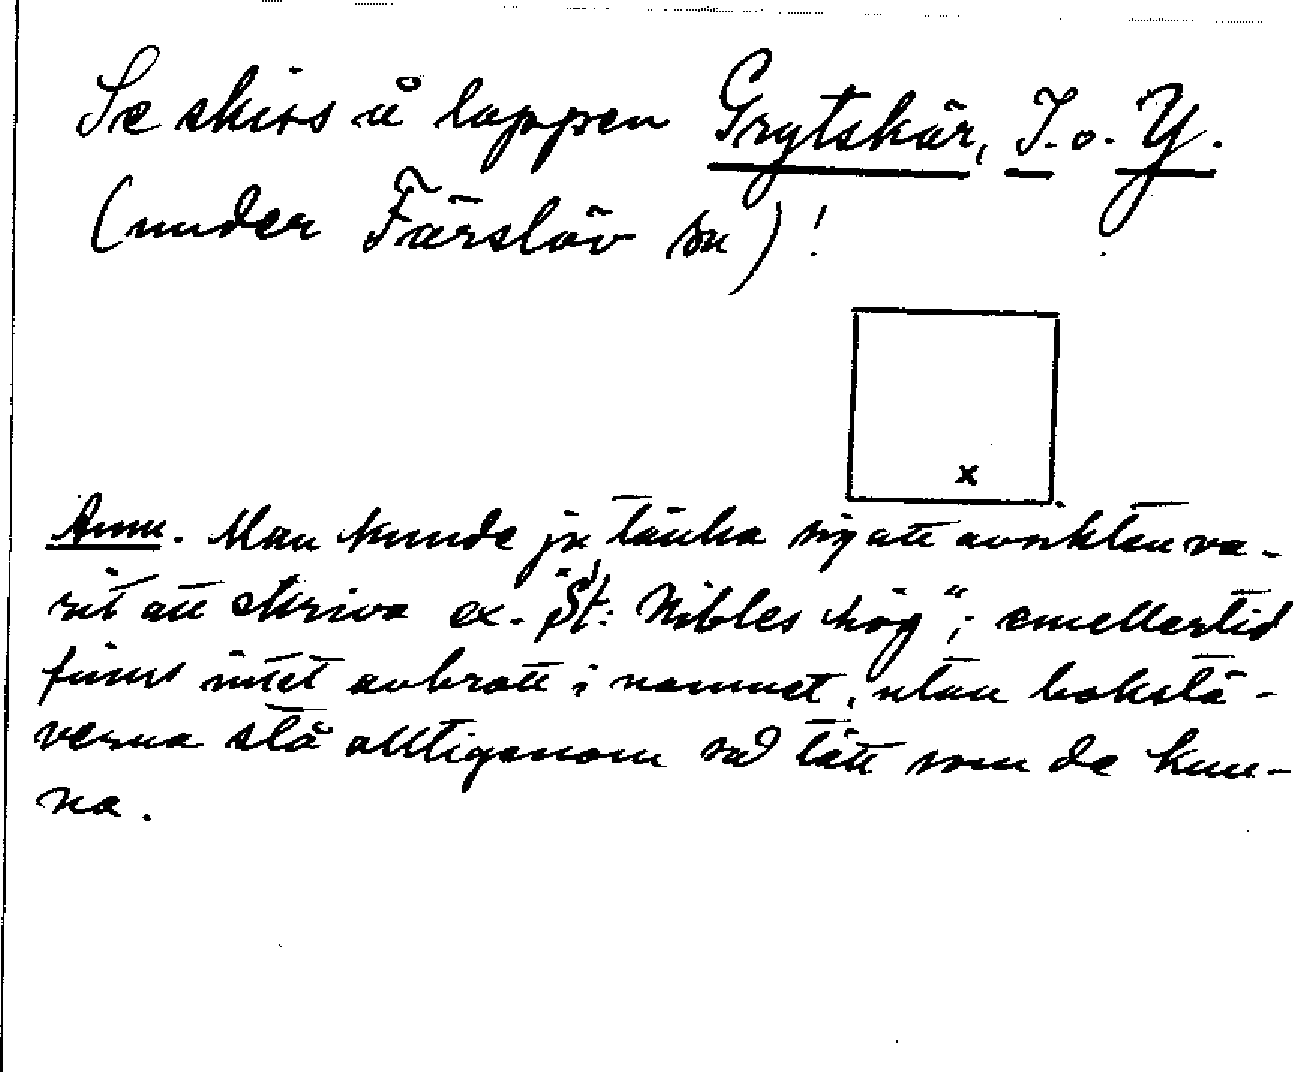 Se skiss å lappen Grytskär, I. o. Y.
(under Färslöv sn)!
x
Anm. Man kunde ju tänka sig att avsikten va-
rit att skriva ex. "St: Nibles hög"; emellertid
finns intet avbrott i namnet, utan bokstä-
verna stå alltigenom så tätt som de kun-
na.